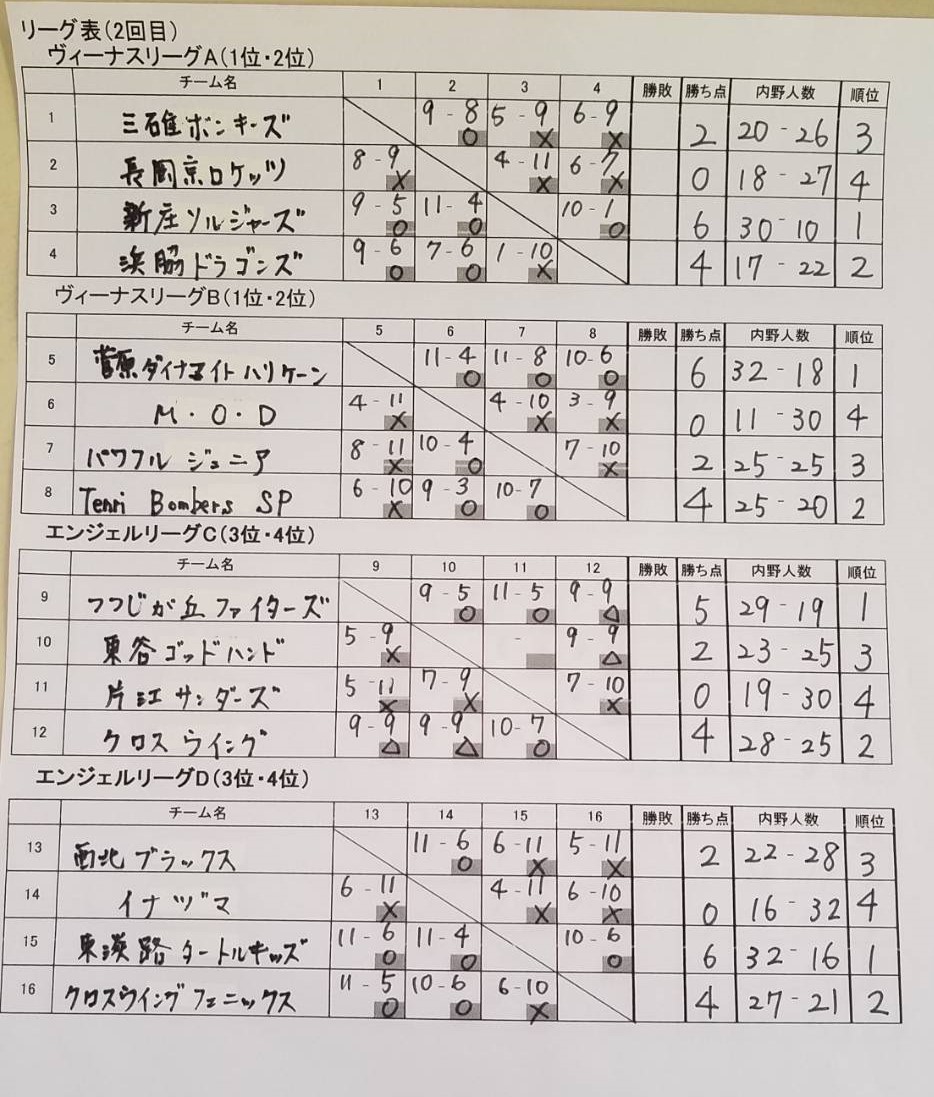 リーグ表(2回目)
ヴィーナスリーグA(1位・2位)
チーム名 1 2 3 4 勝敗 勝ち点 内野人数 順位
1 三碓ボンキーズ 9-8 ○ 5-9 × 6-9 × 2 20-26 3
2 長岡京ロケッツ 8-9 × 4-11 × 6-7 × 0 18-27 4
3 新庄ソルジャーズ 9-5 ○ 11-4 ○ 10-1 ○ 6 30-10 1
4 浜脇ドラゴンズ 9-6 ○ 7-6 ○ 1-10 × 4 17-22 2
ヴィーナスリーグB(1位・2位)
チーム名 5 6 7 8 勝敗 勝ち点 内野人数 順位
5 菅原ダイナマイトハリケーン 11-4 ○ 11-8 ○ 10-6 ○ 6 32-18 1
6 M・O・D 4-11 × 4-10 × 3-9 × 0 11-30 4
7 パワフル ジュニア 8-11 × 10-4 ○ 7-10 × 2 25-25 3
8 Tenri Bombers SP 6-10 × 9-3 ○ 10-7 ○ 4 25-20 2
エンジェルリーグC(3位・4位)
チーム名 9 10 11 12 勝敗 勝ち点 内野人数 順位
9 つつじが丘ファイターズ 9-5 ○ 11-5 ○ 9-9 △ 5 29-19 1
10 東谷ゴッドハンド 5-9 × - 9-9 △ 2 23-25 3
11 片江サンダーズ 5-11 × 7-9 × 7-10 × 0 19-30 4
12 クロスウイング 9-9 △ 9-9 △ 10-7 ○ 4 28-25 2
エンジェルリーグD(3位・4位)
チーム名 13 14 15 16 勝敗 勝ち点 内野人数 順位
13 西北ブラックス 11-6 ○ 6-11 × 5-11 × 2 22-28 3
14 イナヅマ 6-11 × 4-11 × 6-10 × 0 16-32 4
15 東淡路タートルキッズ 11-6 ○ 11-4 ○ 10-6 ○ 6 32-16 1
16 クロスウイングフェニックス 11-5 ○ 10-6 ○ 6-10 × 4 27-21 2